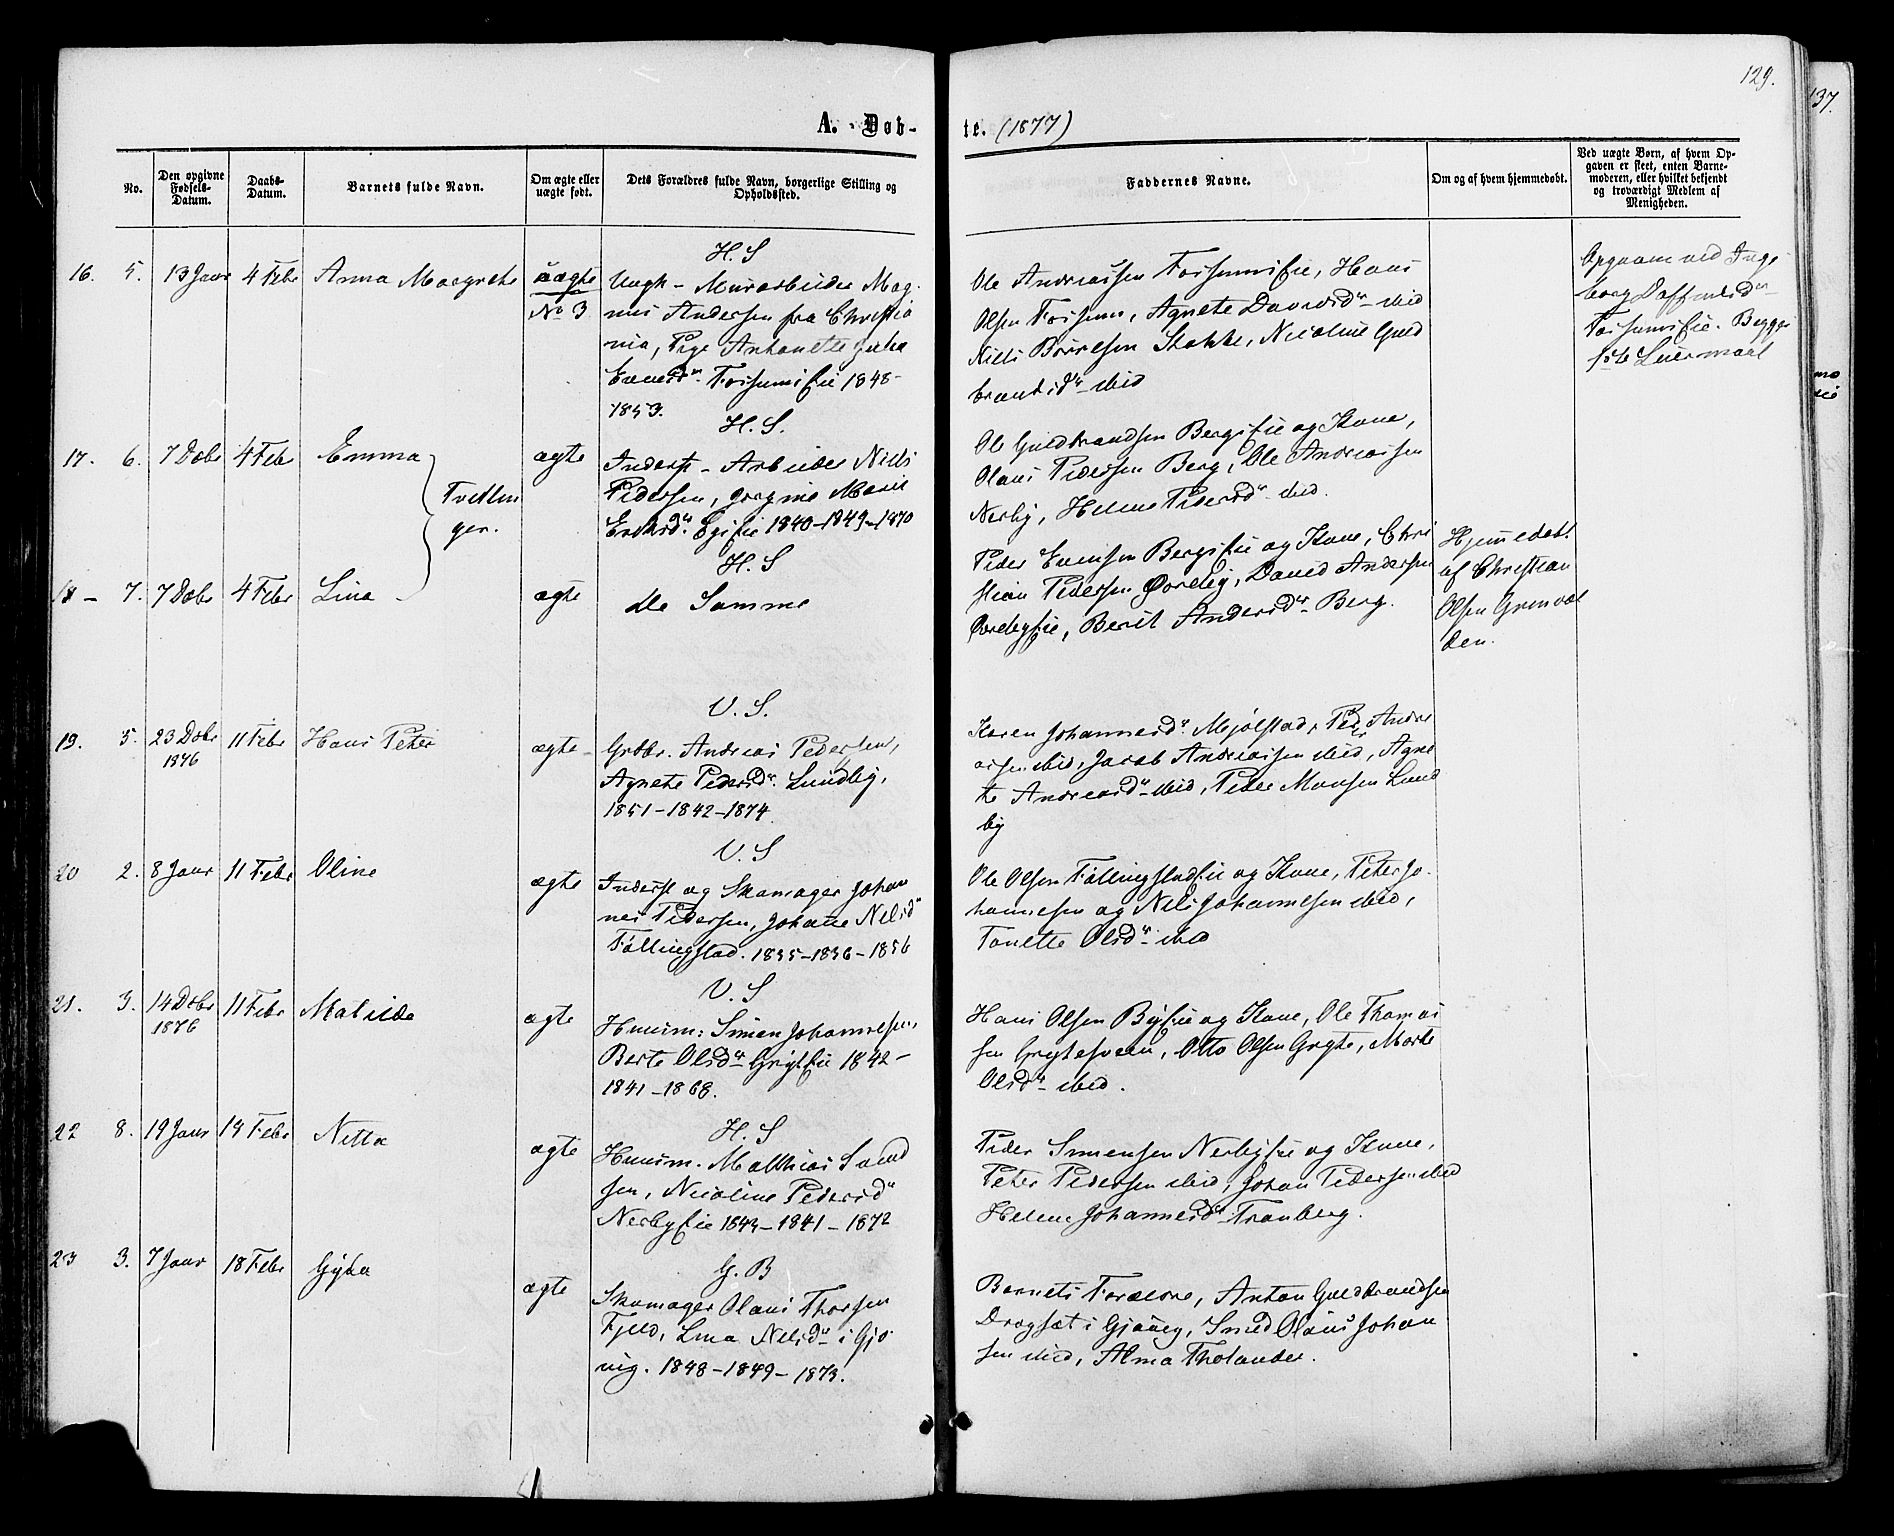 129.
137.
A. Døb-
te. (1877)
No.
Den opgivne
Fødsels-
Datum.
Daabs-
Datum.
Barnets fulde Navn.
Om ægte eller
uægte født.
Dets Forældres fulde Navn, borgerlige Stilling og
Opholdssted.
Faddernes Navne.
Om og af hvem hjemmedøbt.
Ved uægte Børn, af hvem Op-
gaven er skeet, enten Barne-
moderen, eller hvilket bekjendt
og troværdigt Medlem af
Menigheden.
H. S
16. 5. 13 Janr 4 Febr Anna Margrethe uægte
No 3
Ungk - Murarbeider Mag-
nus Andersen fra Christia
nia, Pige Antonette
Evensdr. Fossumseie 1848-
1853.
Ole Andreassen Fossumseie, Hans
Olsen Fossum, Agnete Davidsdr ibid
Niels Stokke, Nicoline Guld
brandsdr ibid
Opgaven ved Inge
borg
Fossumseie. Begges
1ste Leiermaal
H. S.
17. 6. 7 Debr 4 Febr Emma ægte
Tvillin
ger.
Inderst - Arbeider Niels
Pedersen, Marie
Eriksdr. 1840-1849-1870
Ole Guldbrandsen Bergseie og Kone,
Olaus Pedersen Berg, Ole Andreassen
Nerby, Helene Pedersdr ibid.
H. S
18 - 7. 7 Debr 4 Febr Lina ægte
de Samme
Peder Evensen Bergseie og Kone, Chri
stian Pedersen Øverby, David Andersen
Øverbyeie, Berit Andersdr Berg.
Hjemmedøbt
af Christian
Olsen Grønvol
den.
V. S.
19. 5. 23 Debr 11 Febr Hans Peter ægte
1876
Grdbr. Andreas Pedersen,
Agnete Pedersdr. Lundby,
1851-1842-1874.
Karen Johannesdr Mjølstad, Peder Andre
assen ibid, Jacob Andreassen ibid, Agne
te Andreasdr ibid, Peder Monsen Lund
by
V. S
20 2. 8 Janr 11 Febr Oline ægte
Inderst og Skomager Johan
nes Pedersen, Johane Nilsdr
Føllingstad. 1835-1836-1856
Ole Olsen Føllingstadeie og Kone, Peter Jo-
hannesen og Nils Johannesen ibid,
Tonette Olsdr ibid
V. S
21. 3. 14 Debr 11 Febr Matilde ægte
1876
Huusm: Simen Johannesen,
Berte Olsdr Gryteie 1842-
1841-1868.
Hans Olsen Byeie og Kone, Ole Thomas
sen Grytesveen, Otto Olsen Gryte, Marte
Olsdr ibid.
H. S
22 8. 19 Janr 14 Febr Netta ægte
Huusm. Matthias
sen, Nicoline Pedersdr
Nerbyeie 1843-1841-1872
Peder Simensen Nerbyeie og Kone,
Peter Pedersen ibid, Johan Pedersen ibid
Helene Johannesdr Tranberg.
G. B
23 3. 7 Janr 18 Febr Gyda ægte
Skomager Olaus Thorsen
Fjeld, Lina Nilsdr i Gjø
vig. 1848-1849-1873.
Barnets Forældre, Anton Guldbrandsen
Dragsæt i Gjøvig, Smed Olaus Johan
sen ibid, Alma Tholander.